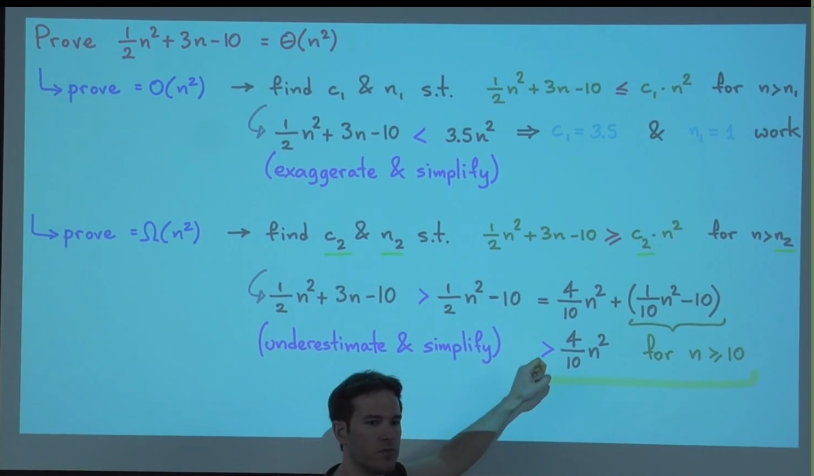 Prove 1/2 n² + 3n - 10 = Θ(n²)
↳ prove = O(n²) → find c₁ & n₁ s.t. 1/2 n² + 3n - 10 ≤ c₁ · n² for n > n₁
1/2 n² + 3n - 10 < 3.5n² ⇒ c₁ = 3.5 & n₁ = 1 work
(exaggerate & simplify)
↳ prove = Ω(n²) → find c₂ & n₂ s.t. 1/2 n² + 3n - 10 ≥ c₂ · n² for n > n₂
1/2 n² + 3n - 10 > 1/2 n² - 10 = 4/10 n² + (1/10 n² - 10)
(underestimate & simplify) > 4/10 n² for n ≥ 10